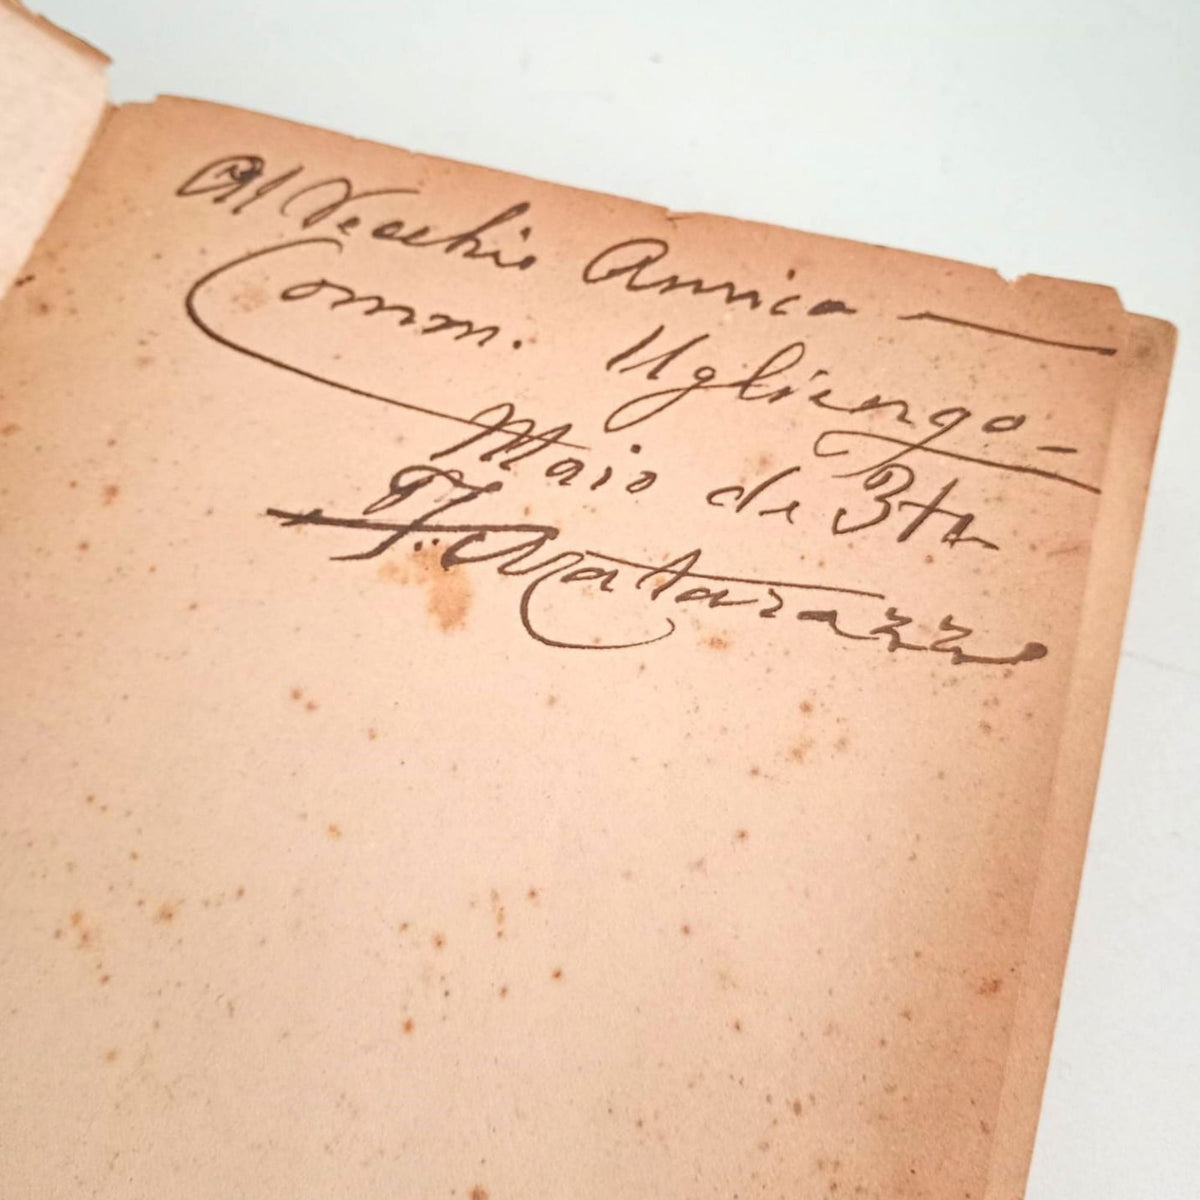 Al Vecchio Amico —
Comm. Ugliengo —
Maio de
F. Matarazzo